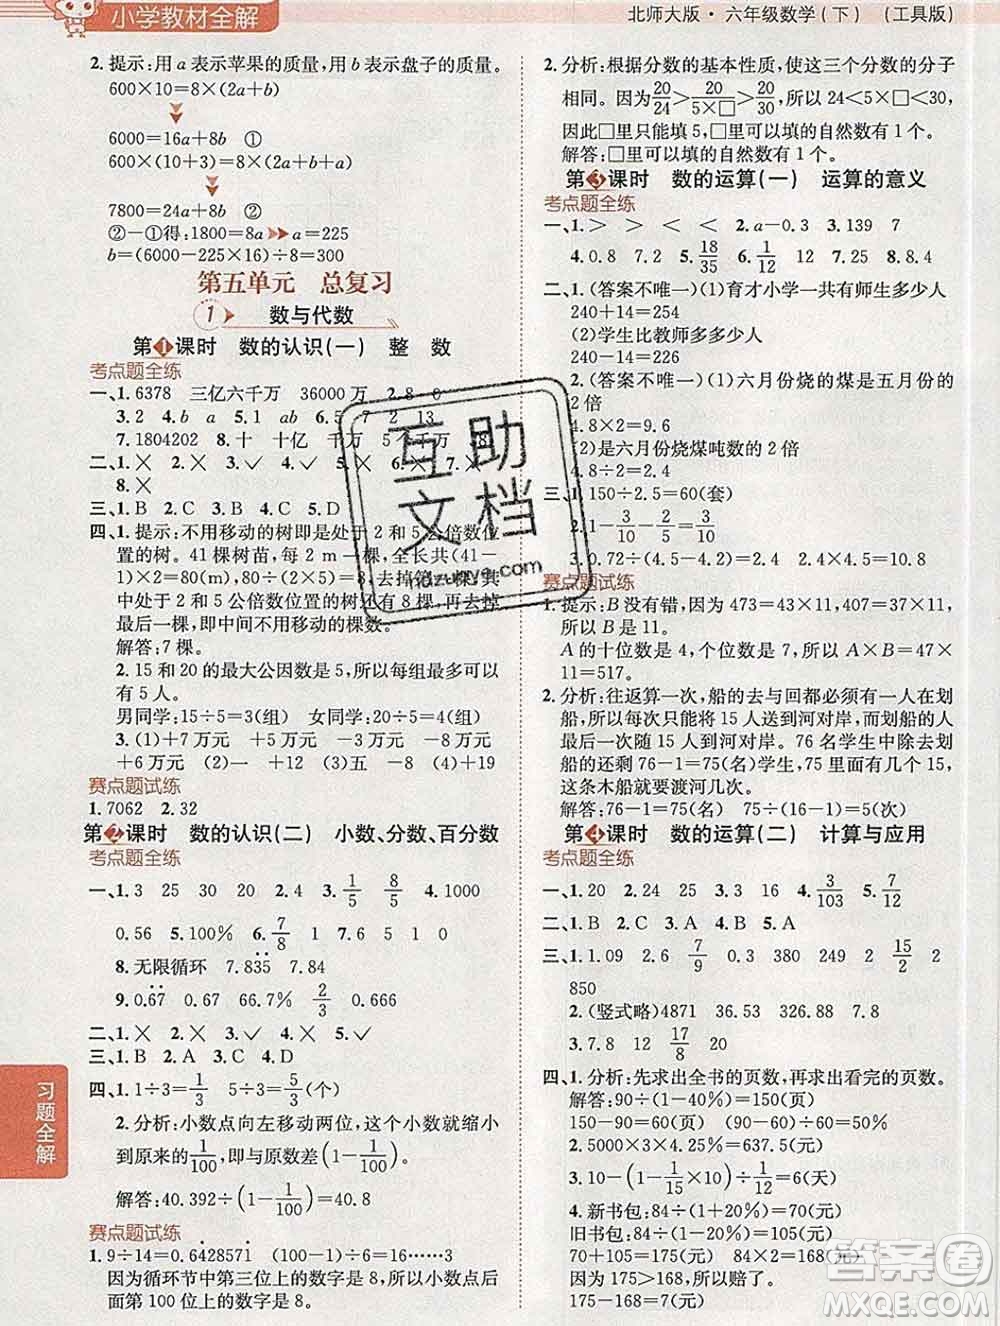 小学教材全解
北师大版·六年级数学(下) (工具版)
2. 提示:用 a 表示苹果的质量,用 b 表示盘子的质量。
600×10=8×(2a+b)
6000=16a+8b ①
600×(10+3)=8×(3a+b)
7800=24a+8b ②
②-①得:1800=8a a=225
b=(6000-225×16)÷8=300
第五单元 总复习
1 数与代数
第1课时 数的认识(一) 整 数
考点题全练
一、1. 6378 三亿六千万 36000万 2. 8 0
3. 2 4. a 5. 1 ab 6. 5 7 2 13
7. 1804202 8. 十 十亿 千万 5个千万
二、1. × 2. × 3. √ 4. × 5. √ 6. × 7. ×
8. ×
三、1. B 2. B 3. C 4. C 5. D
四、1. 提示:不用移动的树即是处于 2 和 5 公倍数位
置的树。41 棵树苗,每 2 m 一棵,全长共(41-
1)×2=80(m),80÷(2×5)=8,去掉第一棵,其
中处于 2 和 5 公倍数位置的树还有 8 棵,再去掉
最后一棵,即中间不用移动的棵数。
解答:7 棵。
2. 15 和 20 的最大公因数是 5,所以每组最多可以
有 5 人。
男同学:15÷5=3(组) 女同学:20÷5=4(组)
3. (1)+7 万元 +5 万元 -2 万元 +3 万元
+6 万元 (2)一 +12 (3)五 -5 (4)+19
赛点题试练
1. 7062 2. 32
第2课时 数的认识(二) 小数、分数、百分数
考点题全练
一、1. 3 25 30 20 2. 4 3. 1/5 8/5 4. 1000
0.56 5. 100% 6. 7/8 1 7. 265 2.65
8. 无限循环 7.835 7.84
9. 0.67 0.667 66.7% 2/3
二、1. × 2. × 3. √ 4. √ 5. ×
三、1. B 2. A 3. D 4. C
四、1. 1÷3=1/3 5÷3=5/3(个)
2. 分析:小数点向左移动两位,这个小数就缩小
到原来的1/100,与原数差(1-1/100)。
解答:40.392÷(1-1/100)=40.8
赛点题试练
1. 9÷14=0.6428571 (100-1)÷6=16……3
因为循环节中第三位上的数字是 8,所以小数点后
面第 100 位上的数字是 8。
2. 分析:根据分数的基本性质,使这三个分数的分子
相同。因为20/24>20/5×□>20/30,所以 24<5×□<30,
因此□里只能填 5,□里可以填的自然数有 1 个。
解答:□里可以填的自然数有 1 个。
第3课时 数的运算(一) 运算的意义
考点题全练
一、1. > > < < 2. a-0.3 3. 139 7
4. 0.8 7.2 5. 18/35 6. 1/12 7. 0 8. 4.03
二、1. (答案不唯一)(1)育才小学一共有师生多少人
240+14=254
(2)学生比教师多多少人
240-14=226
2. (答案不唯一)(1)六月份烧的煤是五月份的
2 倍
4.8×2=9.6
(2)是六月份烧煤吨数的 2 倍
4.8÷2=2.4
三、1. 150÷2.5=60(套)
2. 1-3/10-2/5=3/10
3. 0.72÷(4.5-4.2)=2.4 2.4×4.5=10.8
赛点题试练
1. 提示:B 没有错,因为 473=43×11,407=37×11,
所以 B 是 11。
A 的十位数是 4,个位数是 7,所以 A×B=47×
11=517。
2. 分析:往返算一次,船的去与回都必须有一人在划
船,所以每次只能将 15 人送到河对岸,而划船的
人始终没有送到河对岸。76 名学生中除去划
船的还剩 76-1=75(名)学生,75 里面有几个 15,
这条木船就要渡河几次。
解答:76-1=75(名) 75÷(16-1)=5(次)
第4课时 数的运算(二) 计算与应用
考点题全练
一、1. 20 24 2. > < 3. 3 16 4. 3/103 5. 7/12
二、1. B 2. C 3. A 4. B 5. A
三、1. 53 2.6 7/9 0.3 9 0.2 15/2 2
850
2. (竖式略)4871 36.53 326.88 9.36
3. 7.8 14 17/8 20
四、1. 分析:先求出全书的页数,再求出看完的页数。
解答:90÷(1-40%)=150(页)
150-90=60(页)
2. 5000×3×(1-15%)=637.5(元)
3. 10÷
=6(天)
4. 新书包:84÷(1+20%)=70(元)
旧书包:84÷(1-20%)=105(元)
70+105=175(元) 84×2=168(元)
因为 175>168,所以赔了。
175-168=7(元)
习题全解
互助文档
答案圈
MXQE.COM